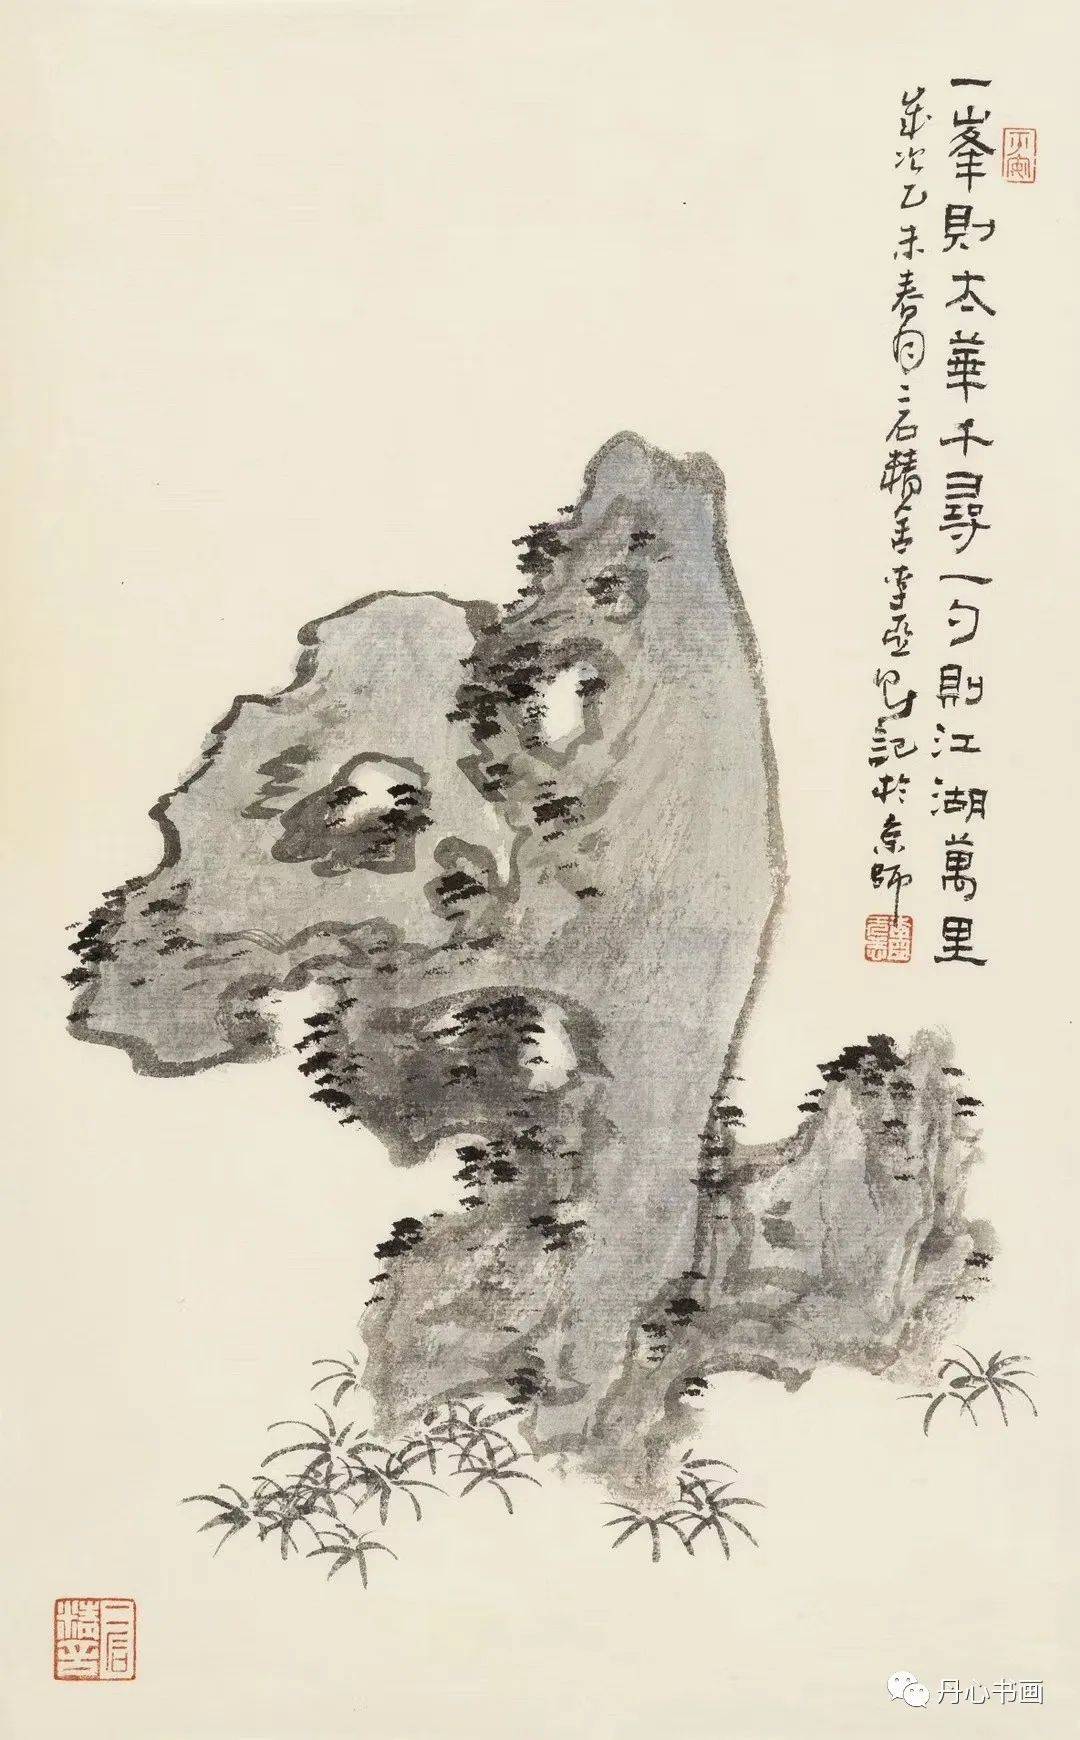 一峯則太華千尋一勺則江湖萬里
歲次乙未春月二石精舍李亞
記於京師
二石精舍
丹心书画